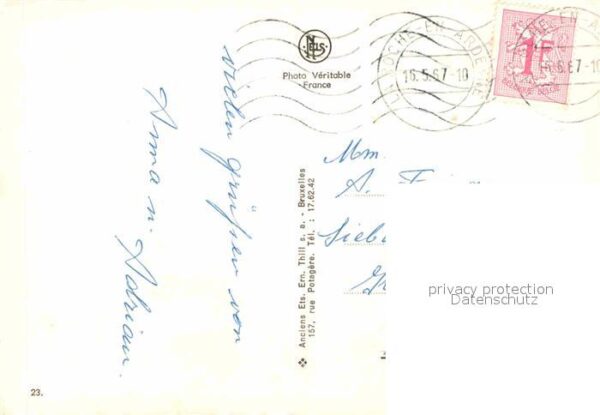 NELS
Photo Véritable
France
LA ROCHE-EN-ARDENNE
16.5.67-10
1F
vielen grüßen von
Anna u. Adrian.
Anciens Ets. Ern. Thill s. a. - Bruxelles
157, rue Potagère. Tél. : 17.62.42
Mm.
A.
privacy protection
Datenschutz
23.